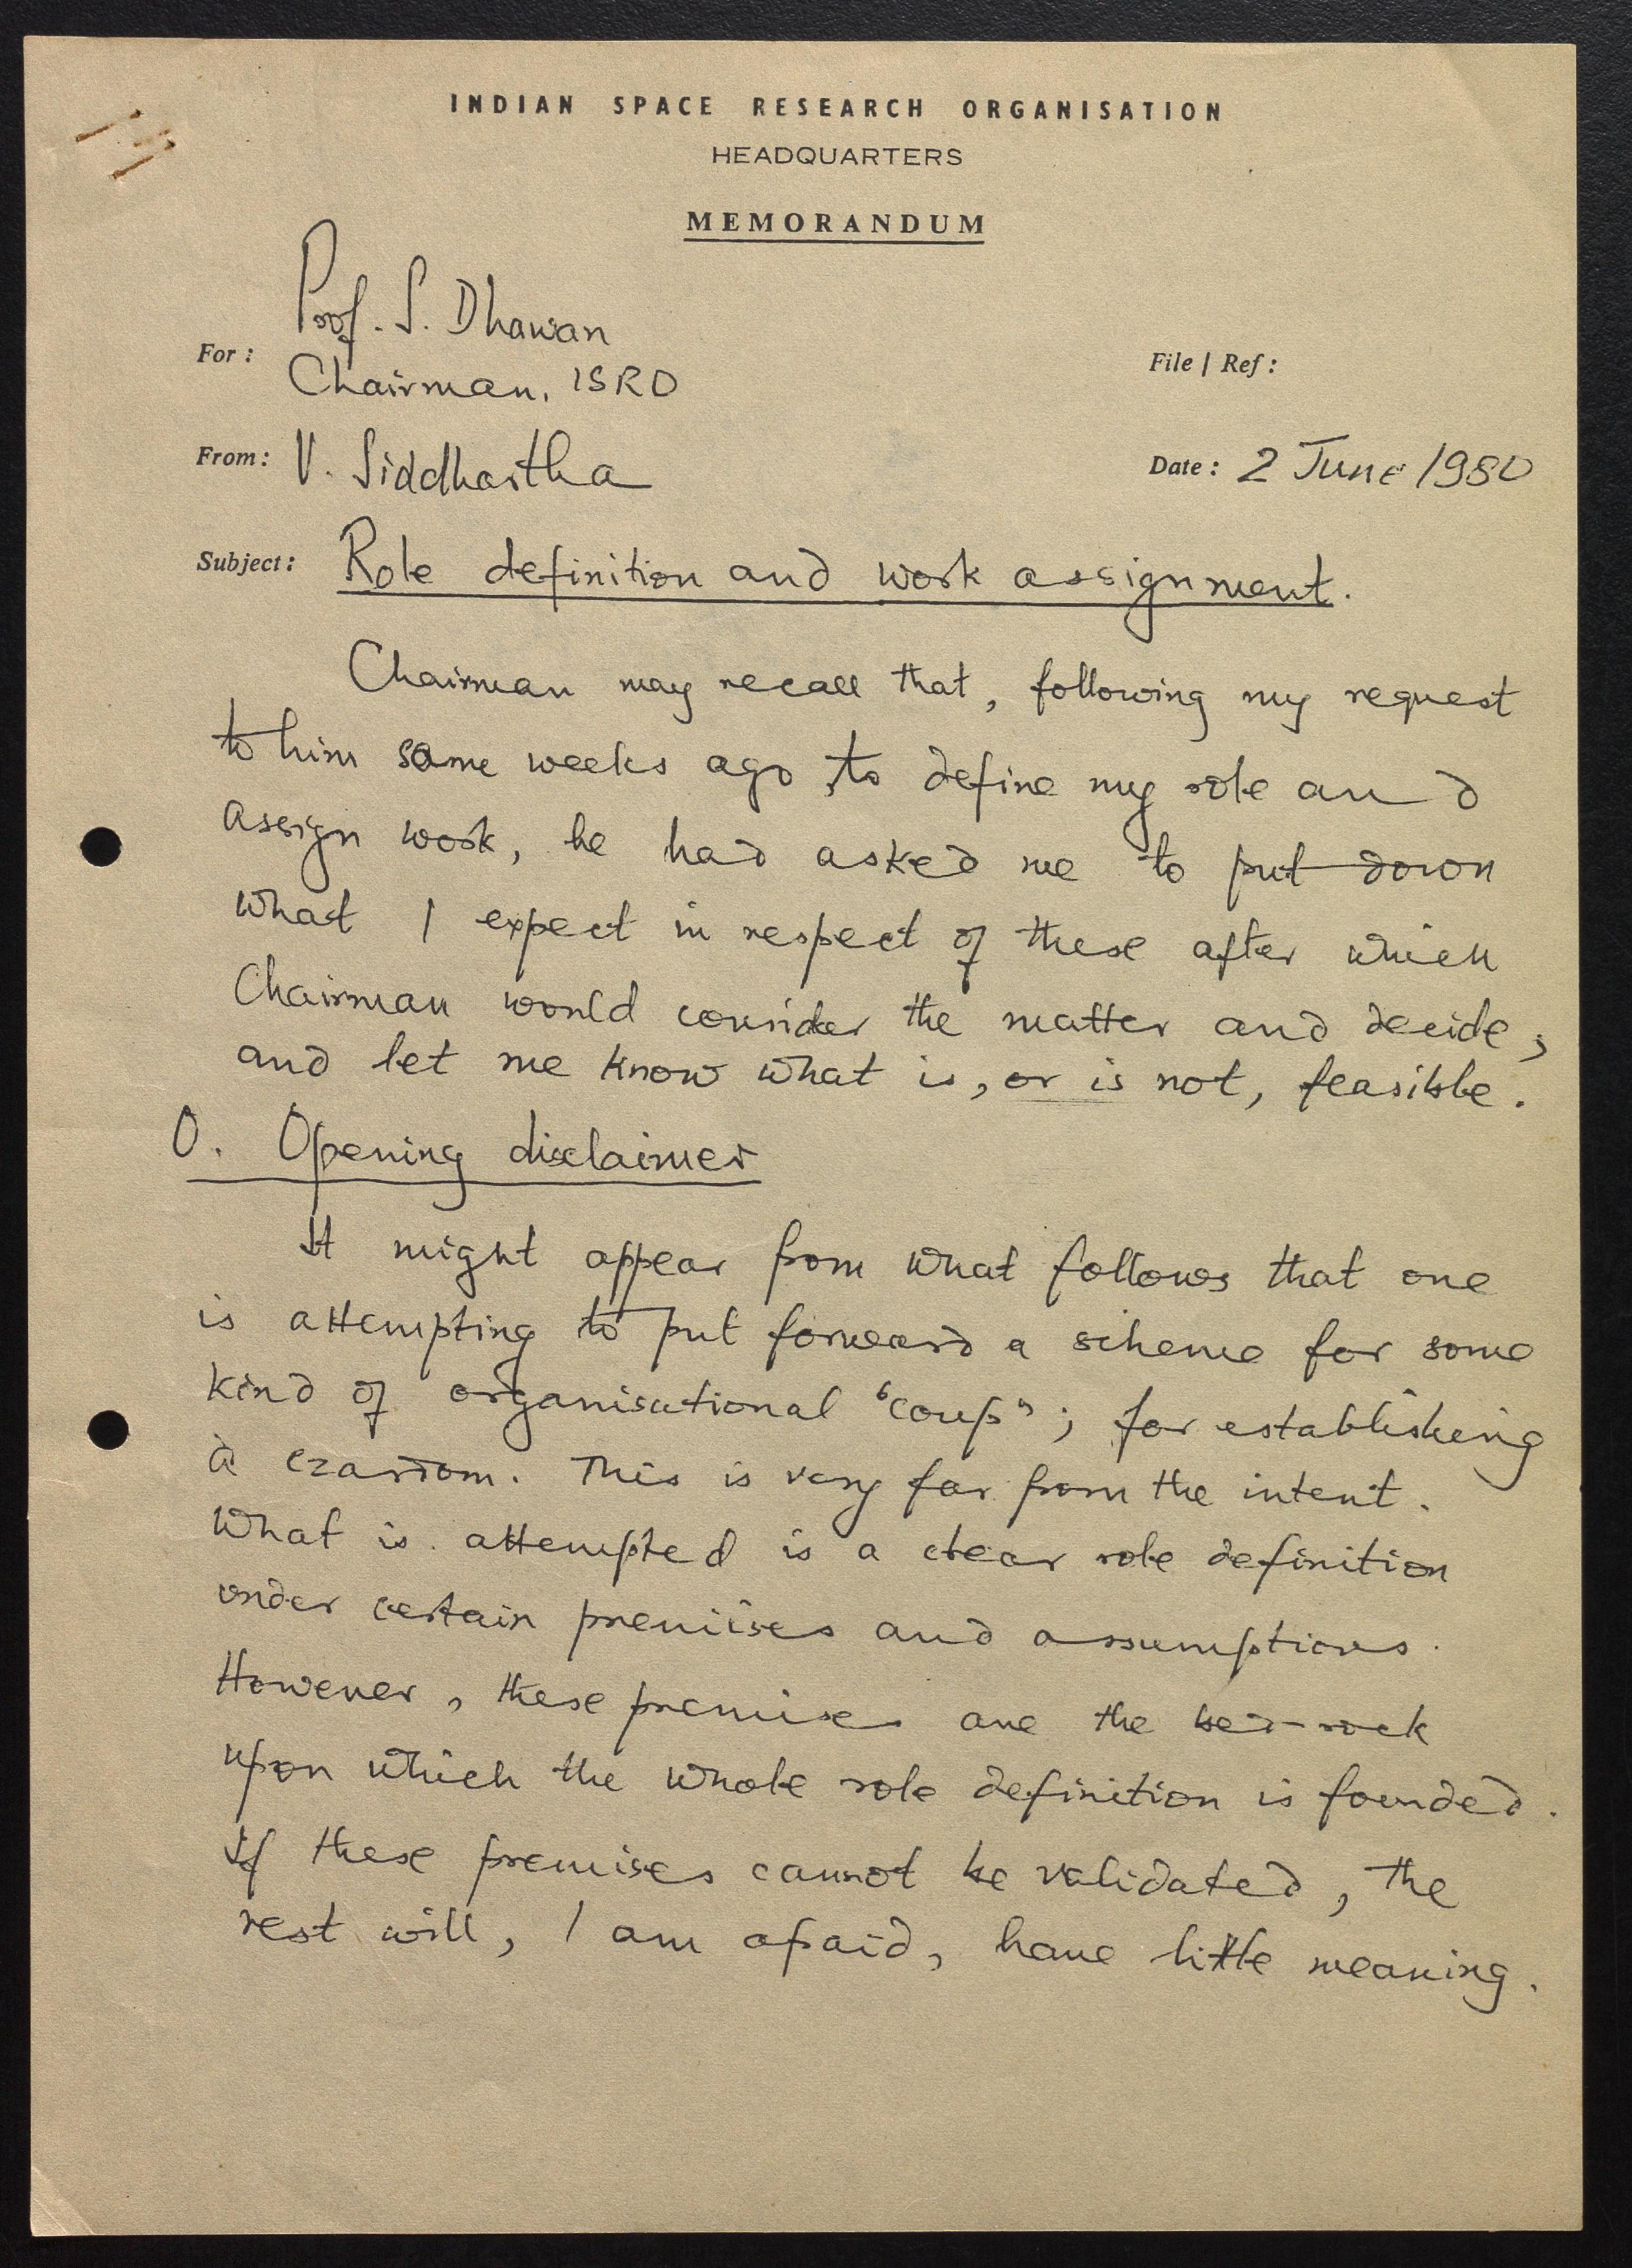 INDIAN SPACE RESEARCH ORGANISATION
HEADQUARTERS
MEMORANDUM
Prof. S. Dhawan
For :
Chairman, ISRO
File / Ref :
From: V. Siddhartha
Date : 2 June 1980
Subject: Role definition and work assignment.
Chairman may recall that, following my request
to him some weeks ago, to define my role and
assign work, he had asked me to put down
what I expect in respect of these after which
Chairman would consider the matter and decide;
and let me know what is, or is not, feasible.
0. Opening disclaimer
It might appear from what follows that one
is attempting to put forward a scheme for some
kind of organisational "coup"; for establishing
a czardom. This is very far from the intent.
What is attempted is a clear role definition
under certain premises and assumptions.
However, these premises are the bed-rock
upon which the whole role definition is founded.
If these premises cannot be validated, the
rest will, I am afraid, have little meaning.